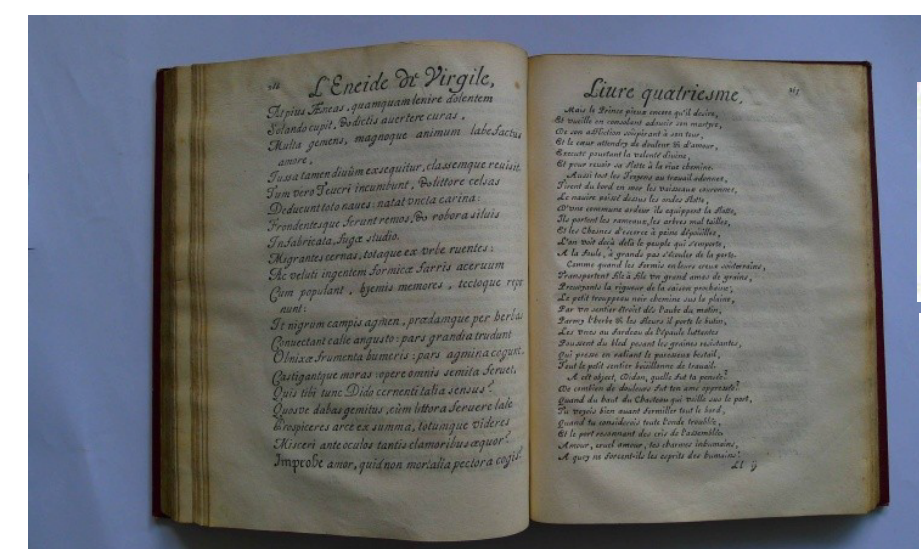 L'Eneide de Virgile,
At pius Æneas, quamquam lenire dolentem
Solando cupit, & dictis auertere curas,
Multa gemens, magnoque animum labefactus
amore,
Jussa tamen diuûm exsequitur, classemque reuisit.
Tum vero Teucri incumbunt, & littore celsas
Deducunt toto naues: natat vncta carina:
Frondentesque ferunt remos, & robora siluis
Infabricata, fugæ studio.
Migrantes cernas, totaque ex vrbe ruentes:
Ac veluti ingentem formicæ farris aceruum
Cum populant, hyemis memores, tectoque repo
nunt:
It nigrum campis agmen, prædamque per herbas
Conuectant calle angusto: pars grandia trudunt
Obnixæ frumenta humeris: pars agmina cogunt,
Castigantque moras: opere omnis semita feruet,
Quis tibi tunc Dido cernenti talia sensus?
Quosve dabas gemitus, cùm littora feruere late
Prospiceres arce ex summa, totumque videres
Misceri ante oculos tantis clamoribus æquor?
Improbe amor, quid non mortalia pectora cogis?
Liure quatriesme,
Mais le Prince pieux encore qu'il desire,
Et vueille en consolant adoucir son martyre,
De son affliction soûpirant à son tour,
Et le cœur attendry de douleur & d'amour,
Execute pourtant la volonté diuine,
Et pour reuoir sa flotte à la riue chemine.
Aussi tost les Troyens au trauail adonnez,
Tirent du bord en mer les vaisseaux couronnez,
Le nauire poissé dessus les ondes flotte,
D'vne commune ardeur ils équippent la flotte,
Ils portent les rameaux, les arbres mal taillez,
Et les Chesnes d'escorce à peine dépoüillez,
L'on voit decà delà le peuple qui s'emporte,
A la foule, à grands pas s'écouler de la porte.
Comme quand les formis en leurs creux soûterrains,
Transportent file à file vn grand amas de grains,
Preuoyants la rigueur de la saison prochaine,
Le petit trouppeau noir chemine sur la plaine,
Par vn sentier étroit dés l'aube du matin,
Parmy l'herbe & les fleurs il porte le butin,
Les vnes au fardeau de l'épaule luttantes
Poussent du bled pesant les graines resistantes,
Qui presse en ralliant le paresseux bestail,
Tout le petit sentier boüillonne de trauail.
A cét object, Didon, quelle fut ta pensée?
De combien de douleurs fut ton ame oppressée?
Quand du haut du Chasteau qui veille sur le port,
Tu voyois bien auant formiller tout le bord,
Quand tu considerois toute l'onde troublée,
Et le port resonnant des cris de l'assemblée.
Amour, cruel amour, tes charmes inhumains,
A quoy ne forcent-ils les esprits des humains?
Ll ij